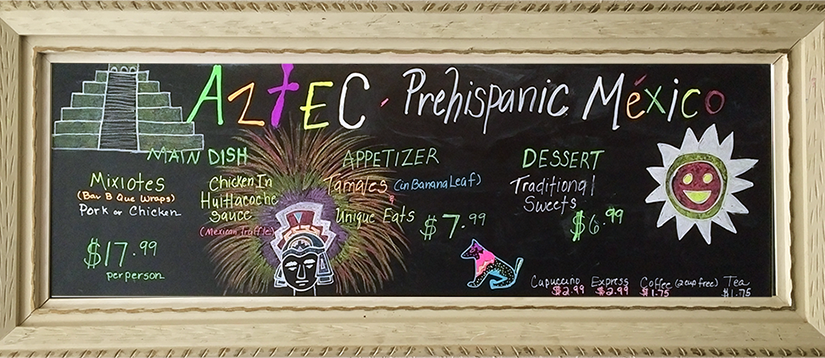 AztEC - Prehispanic México
MAIN DISH
Mixiotes
(Bar B Que Wraps)
Pork or Chicken
$17.99
per person
Chicken In
Huitlacoche
Sauce
(Mexican truffle)
APPETIZER
Tamales (in Banana Leaf)
&
Unique Eats
$7.99
DESSERT
Traditional
Sweets
$6.99
Capuccino Express Coffee (2 cup free) Tea
$2.99 $2.99 $1.75 $1.75